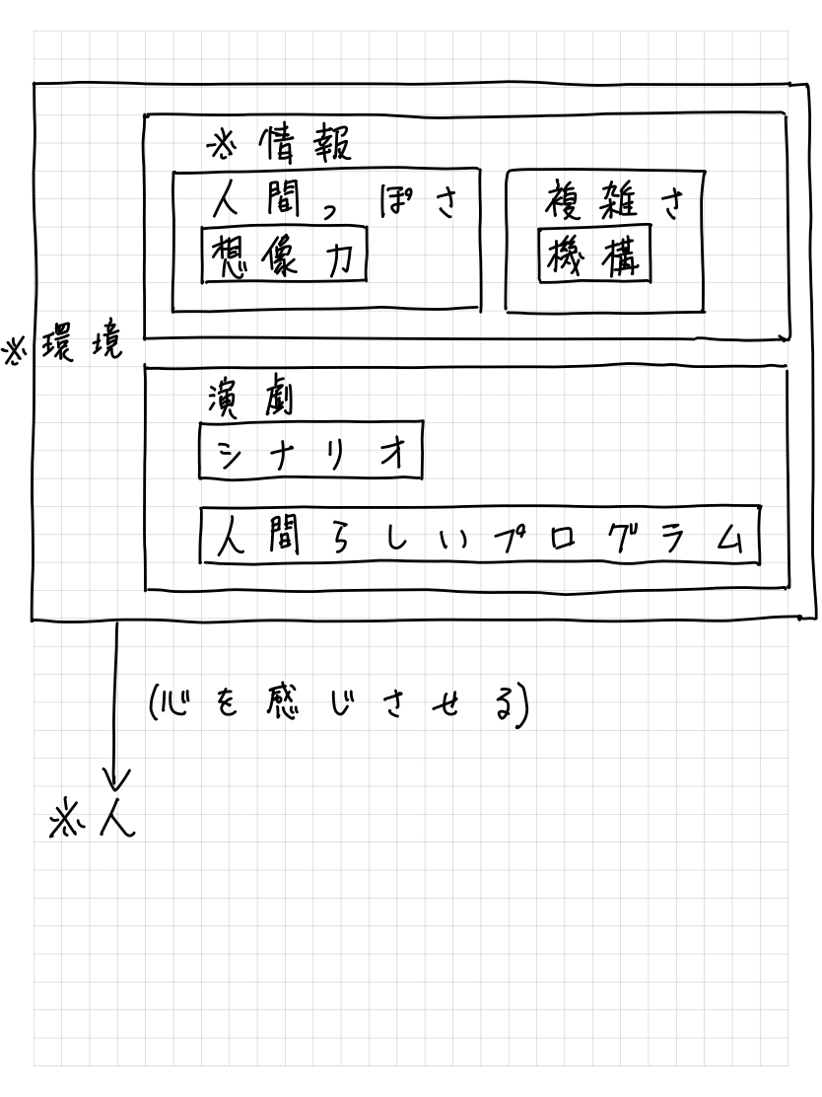 ※情報
人間っぽさ
想像力
複雑さ
機構
※環境
演劇
シナリオ
人間らしいプログラム
(心を感じさせる)
※人